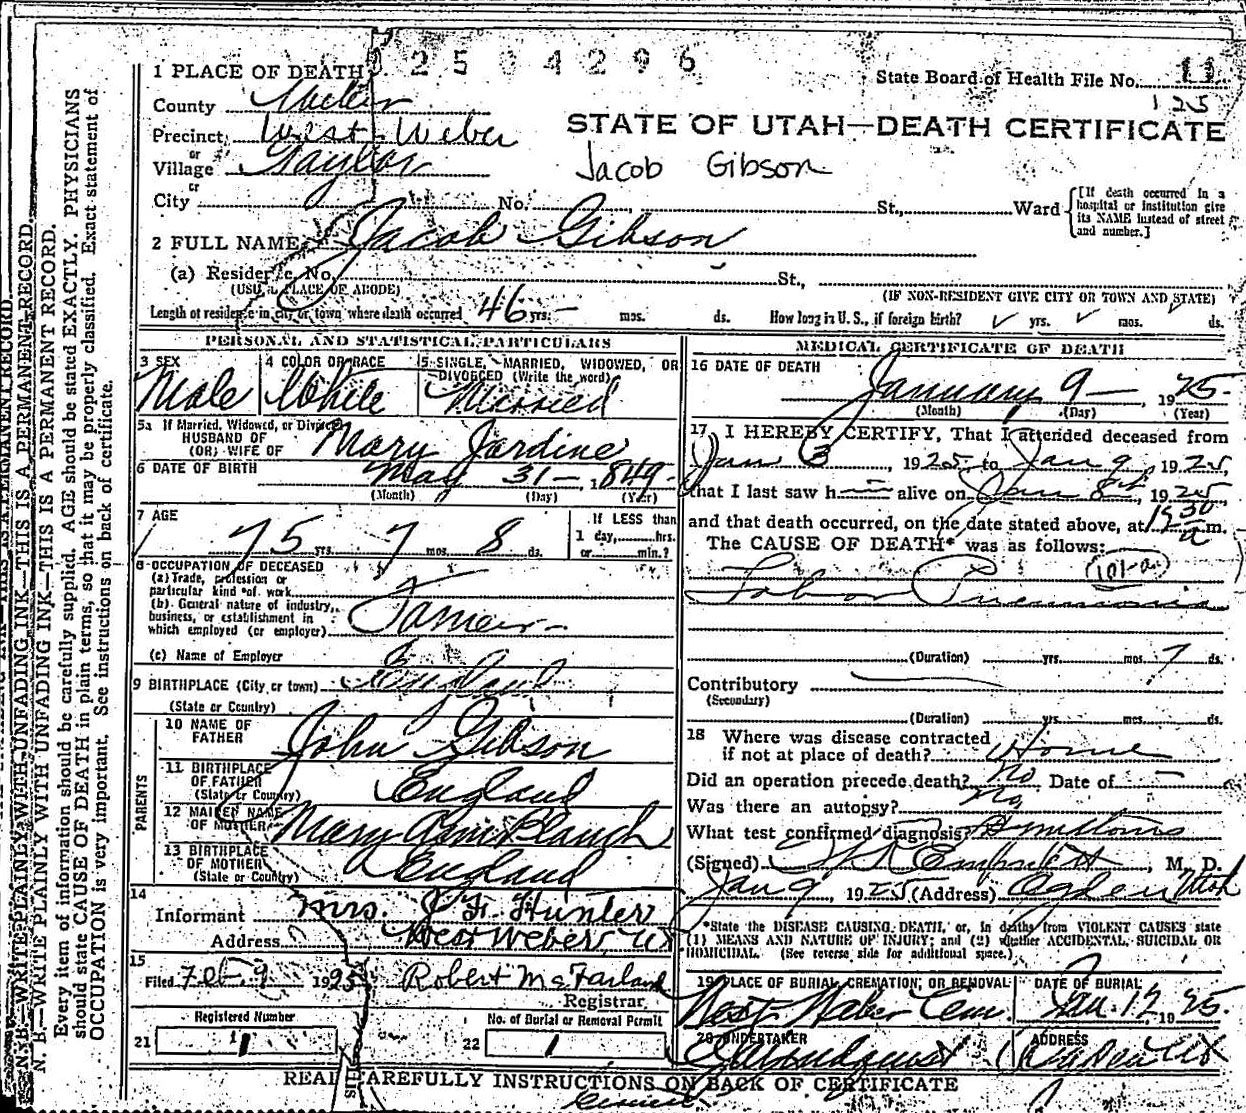 2504296
State Board of Health File No. 11
125
1 PLACE OF DEATH
County Weber
STATE OF UTAH—DEATH CERTIFICATE
Precinct West Weber
or
Village Taylor
Jacob Gibson
or
City No. St., Ward
[If death occurred in a hospital or institution give its NAME instead of street and number.]
2 FULL NAME Jacob Gibson
(a) Residence, No. St.,
(USUAL PLACE OF ABODE) (IF NON-RESIDENT GIVE CITY OR TOWN AND STATE)
Length of residence in city or town where death occurred 46 yrs. — mos. ds. How long in U. S., if foreign birth? yrs. mos. ds.
PERSONAL AND STATISTICAL PARTICULARS
3 SEX
Male
4 COLOR OR RACE
White
5 SINGLE, MARRIED, WIDOWED, OR
DIVORCED (Write the word)
Married
5a If Married, Widowed, or Divorced
HUSBAND OF
(OR) WIFE OF Mary Jardine
6 DATE OF BIRTH May 31 — , 1849
(Month) (Day) (Year)
7 AGE
75 yrs. 7 mos. 8 ds.
If LESS than
1 day, hrs.
or min.?
8 OCCUPATION OF DECEASED
(a) Trade, profession or
particular kind of work
(b) General nature of industry,
business, or establishment in
which employed (or employer)
(c) Name of Employer
9 BIRTHPLACE (City or town) England
(State or Country)
PARENTS
10 NAME OF
FATHER John Gibson
11 BIRTHPLACE
OF FATHER England
(State or Country)
12 MAIDEN NAME
OF MOTHER Mary Ann
13 BIRTHPLACE
OF MOTHER England
(State or Country)
14
Informant Mrs. J. F. Hunter
Address West Weber, Ut
15
Filed Feb 9 1925 Robert McFarland
Registrar
Registered Number
21 1
No. of Burial or Removal Permit
22 1
MEDICAL CERTIFICATE OF DEATH
16 DATE OF DEATH
January 9 — , 1925
(Month) (Day) (Year)
17 I HEREBY CERTIFY, That I attended deceased from
Jan 3, 1925, to Jan 9, 1925,
that I last saw h alive on Jan 8th, 1925
and that death occurred, on the date stated above, at a m.
The CAUSE OF DEATH* was as follows:
(101-a)
Lobar Pneumonia
(Duration) yrs. mos. 7 ds.
Contributory
(Secondary)
(Duration) yrs. mos. ds.
18 Where was disease contracted
if not at place of death? Home
Did an operation precede death? No Date of —
Was there an autopsy? No
What test confirmed diagnosis? Symptoms
(Signed) , M. D.
Jan 9, 1925 (Address) Ogden Utah
*State the DISEASE CAUSING DEATH, or, in deaths from VIOLENT CAUSES state
(1) MEANS AND NATURE OF INJURY; and (2) whether ACCIDENTAL, SUICIDAL OR
HOMICIDAL. (See reverse side for additional space.)
19 PLACE OF BURIAL, CREMATION, OR REMOVAL
West Weber Cem.
DATE OF BURIAL
Jan. 12, 1925.
20 UNDERTAKER
ADDRESS
Ogden Ut
READ CAREFULLY INSTRUCTIONS ON BACK OF CERTIFICATE
N. B.—WRITE PLAINLY WITH UNFADING INK—THIS IS A PERMANENT RECORD.
N. B.—WRITE PLAINLY WITH UNFADING INK—THIS IS A PERMANENT RECORD.
Every item of information should be carefully supplied. AGE should be stated EXACTLY. PHYSICIANS
should state CAUSE OF DEATH in plain terms, so that it may be properly classified. Exact statement of
OCCUPATION is very important. See instructions on back of certificate.